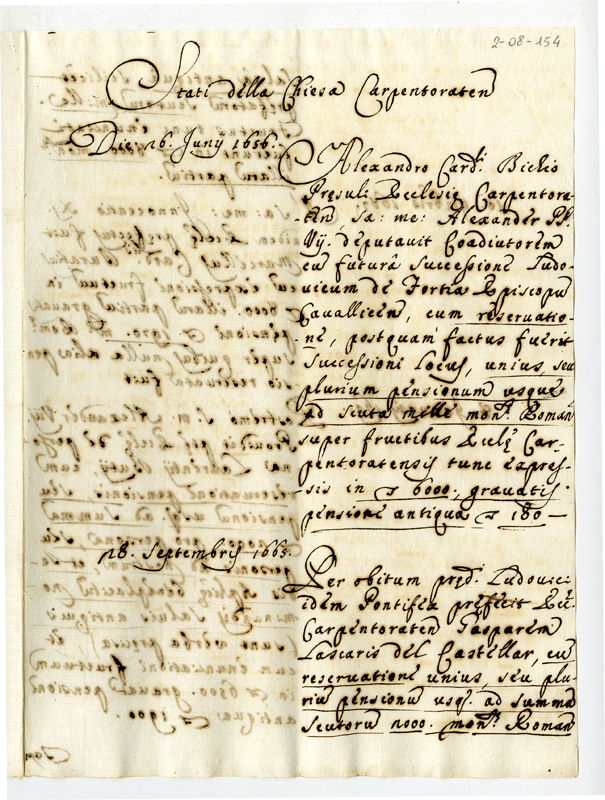 2-08-154
Stati della Chiesa Carpentoraten
Die 16. Junij 1656.
Alexandro Card.li Bichio
Presuli Ecclesię Carpentora-
ten, Sa: me: Alexander PP.
Vij. deputauit Coadiutorem
cū futurâ Successione Ludo-
uicum de Fortia Episcopū
Cavallicen, cum reseruatio-
ne, postquam factus fuerit
Successioni locus, unius, seu
plurium pensionum usque
ad scuta mille mon.ę Roman
super fructibus Ecclę Car-
pentoratensis tunc expres-
sis in ▽ 6000; grauatis
pensione antiqua ▽ 180—
18. Septembris 1665.
Per obitum pręd.i Ludouici
idem Pontifex prefecit Ecc.
Carpentoraten Gasparem
Lascaris del Castellar, cū
reseruatione unius, seu plu-
riū pensionū usq. ad summā
Scutorū 1100. mon.ę Roman